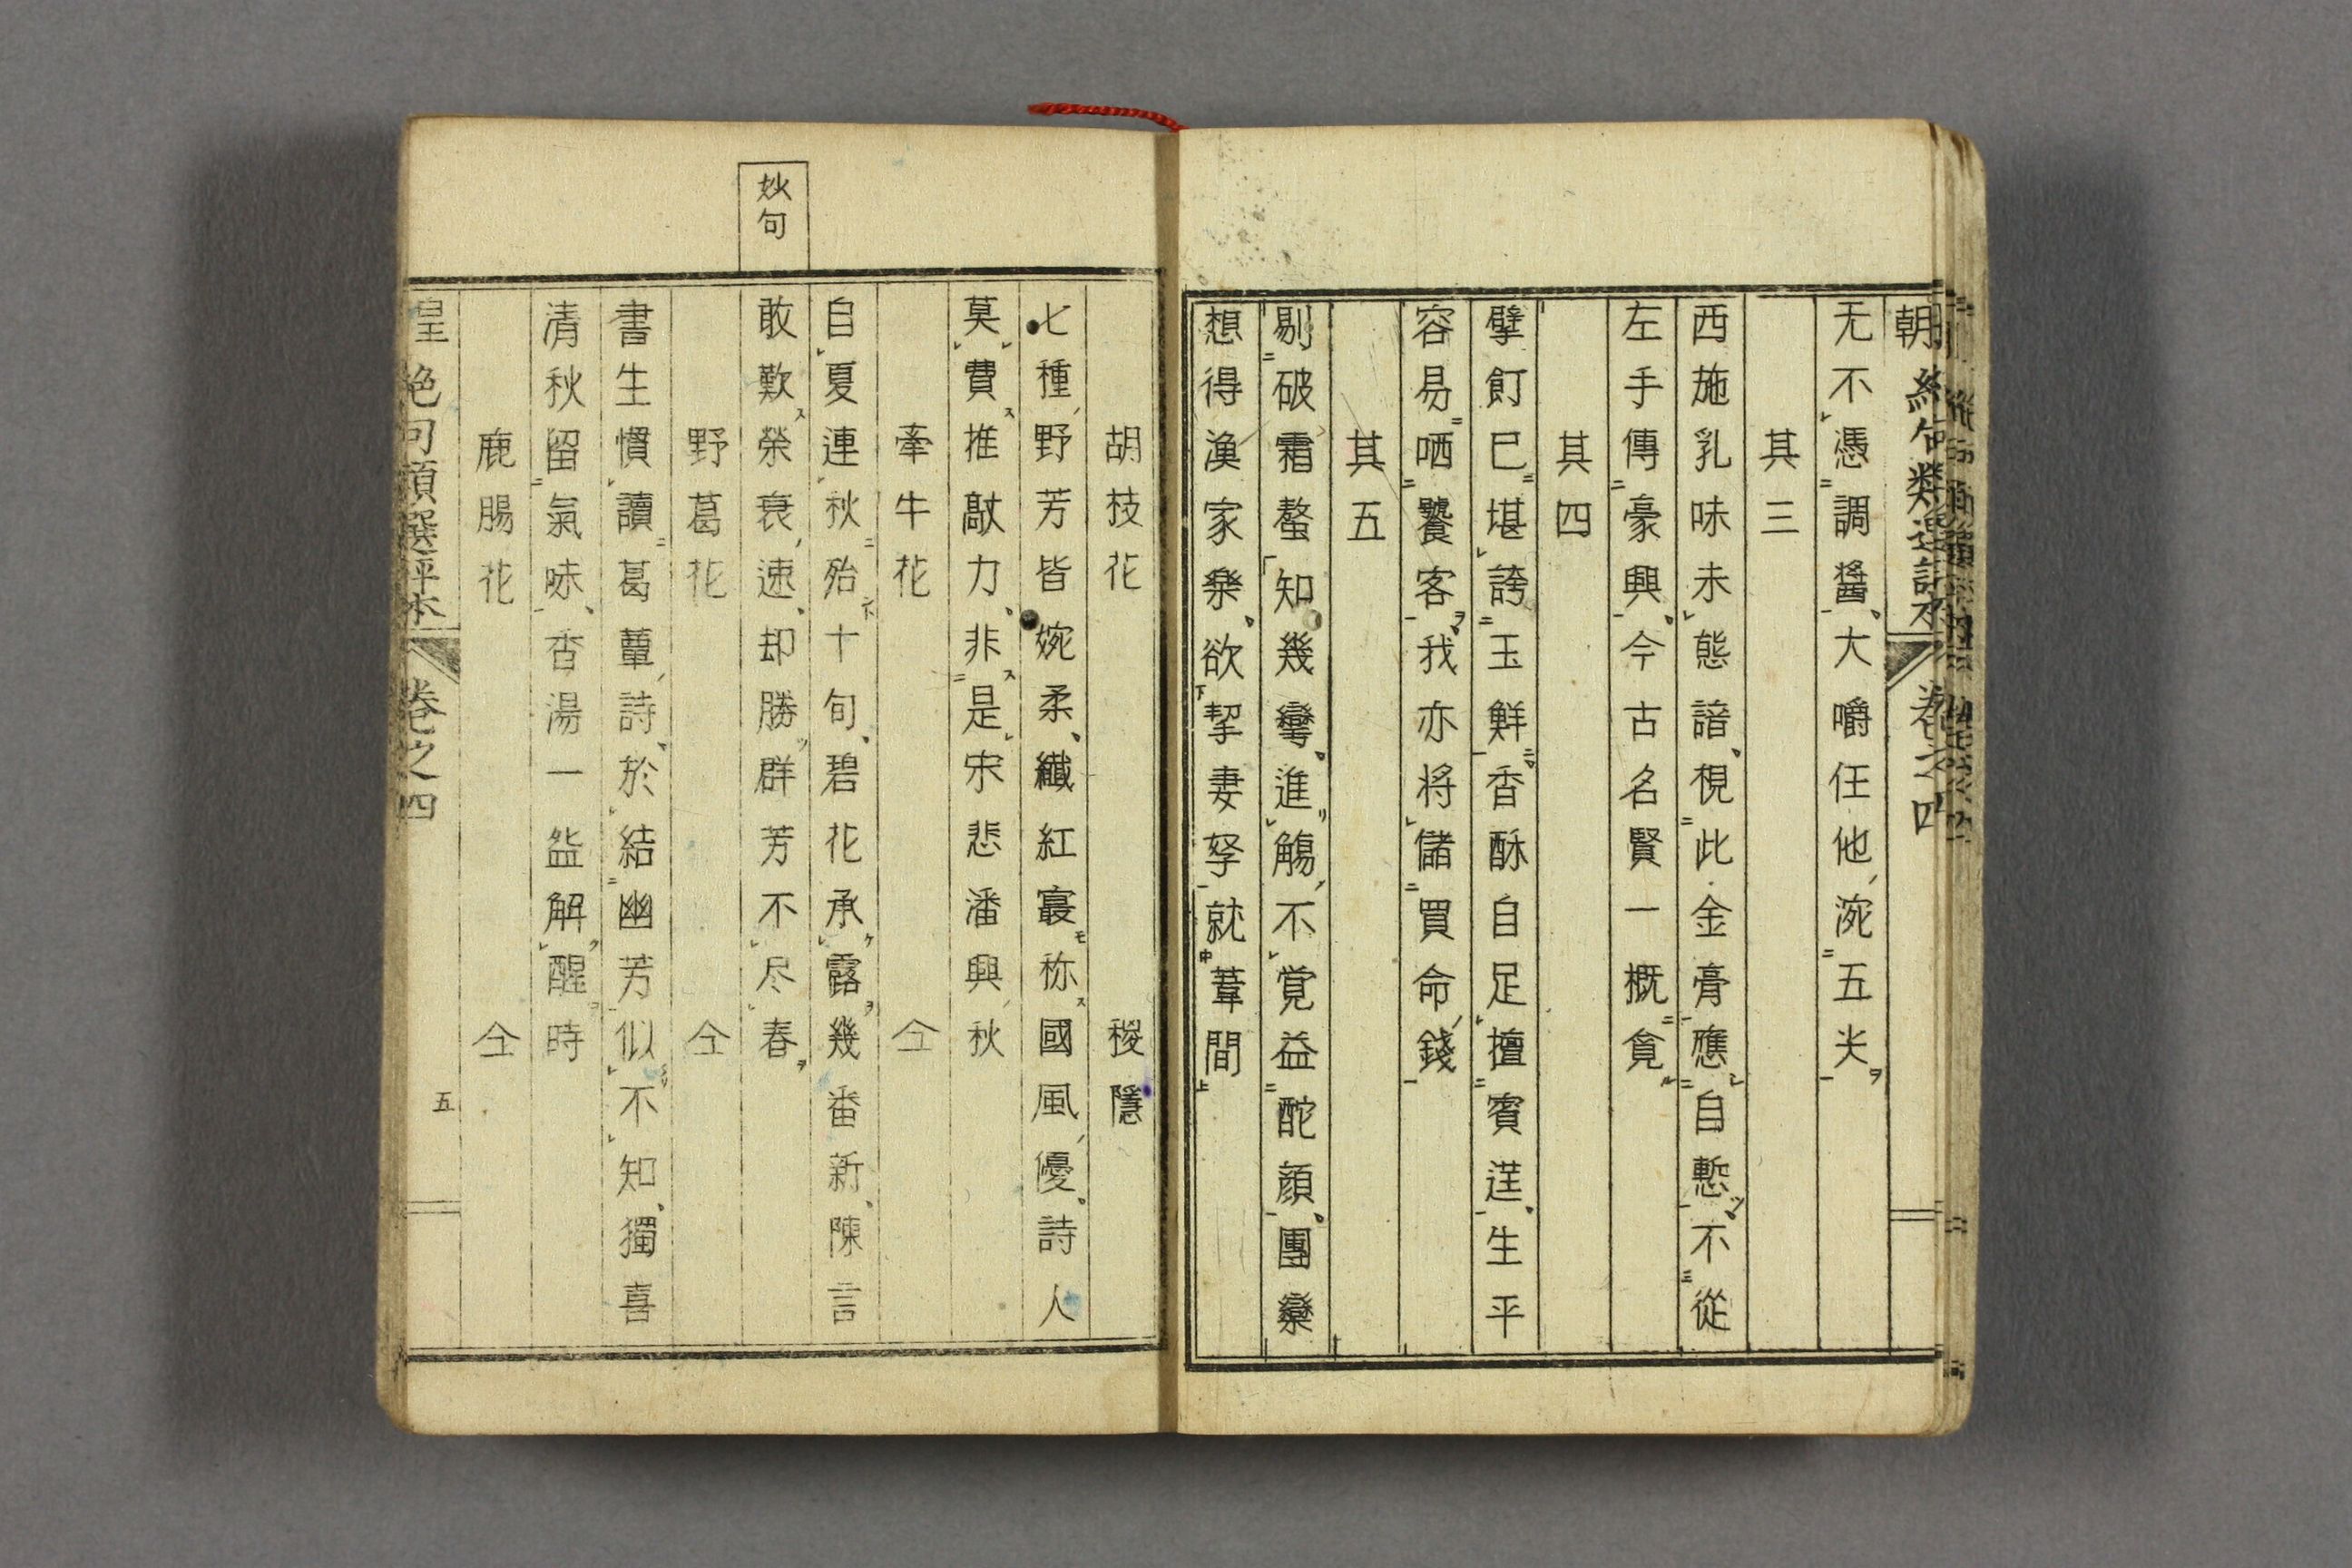 朝絶句類選評本 巻之四
无不憑調醬大嚼任他涴五㳄
其三
西施乳味未態諳視此金膏應自慙不從
左手傳豪興今古名賢一概貪
其四
擘飣巳堪誇玉鮮香酥自足擅賓筵生平
容易哂饕客我亦将儲買命錢
其五
剔破霜螯知幾彎進觴不覚益酡顔團欒
想得漁家楽欲挈妻孥就葦間
胡枝花 稷隱
七種野芳皆婉柔纖紅㝡称國風優詩人
莫費推敲力非是宋悲潘興秋
牽牛花 仝
自夏連秋殆十旬碧花承露幾番新陳言
敢歎榮衰速却勝群芳不尽春
妙句
野葛花 仝
書生慣讀葛蕇詩於結幽芳似不知獨喜
清秋留氣味香湯一盌解醒時
鹿腸花 仝
皇 絶句類選評本 巻之四 五